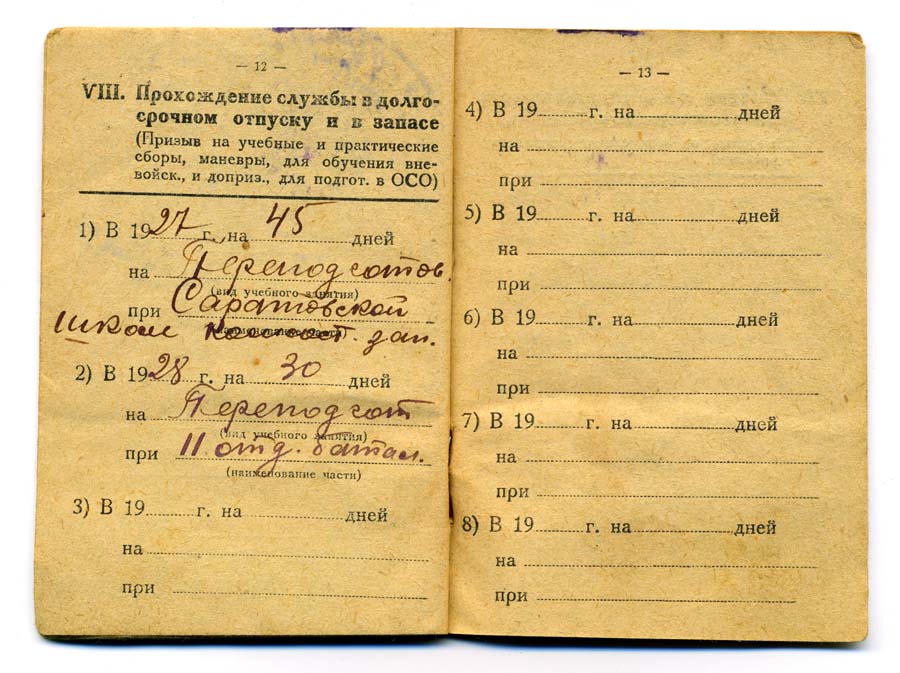 — 12 —
VIII. Прохождение службы в долго-
срочном отпуску и в запасе
(Призыв на учебные и практические
сборы, маневры, для обучения вне-
войск., и доприз., для подгот. в ОСО)
1) В 1927 г. на 45 дней
на Переподготов.
(вид учебного занятия)
при Саратовской
(наименование части)
школ комсост. зап.
2) В 1928 г. на 30 дней
на Переподгот
(вид учебного занятия)
при 11 отд. батал.
(наименование части)
3) В 19 г. на дней
на
при
— 13 —
4) В 19 г. на дней
на
при
5) В 19 г. на дней
на
при
6) В 19 г. на дней
на
при
7) В 19 г. на дней
на
при
8) В 19 г. на дней
на
при